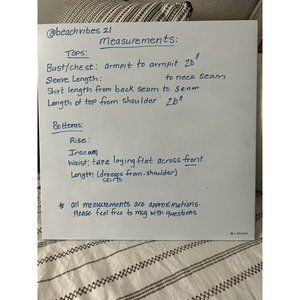 @beachvibes21
Measurements:
Tops:
Bust/chest: armpit to armpit 20"
Sleeve Length: to neck seam
Shirt length from back seam to seam
Length of top from shoulder 26"
Bottoms:
Rise:
Inseam
Waist: tape laying flat across front
Length (dresses from shoulder)
skirts
★ all measurements are approximations.
Please feel free to msg with questions